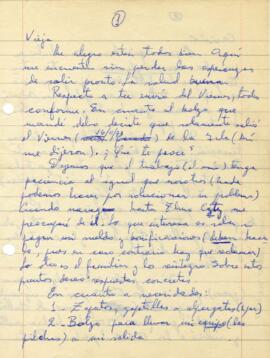 ①
Vieja
Me alegro estén todos bien. Aquí
me encuentro sin perder las esperanzas
de salir pronto. La salud buena.
Respecto a tu envío del Viernes, todo
conforme. En cuanto al bolso que
mandé debo decirte que solamente salió
el Viernes de la Isla (así
me dijeron). ¿Qué te parece?
Dígamos que el trabajo (el mío) tenga
paciencia al igual que nosotros (nada
podemos hacer por solucionar mi problema)
Cuando hasta
preocupen de él. Lo que interesa es saber si
pagan mi sueldo y bonificaciones (deben hacer-
lo), pues en caso contrario hay que reclamar
lo dicen el y los reintegros. Sobre estos
puntos deseo respuestas concretas.
En cuanto a necesidades:
1.- Zapatos, zapatillas o alpargatas (ojo)
2.- Bolso para llevar mi equipo (las
pilchas) a mi salida